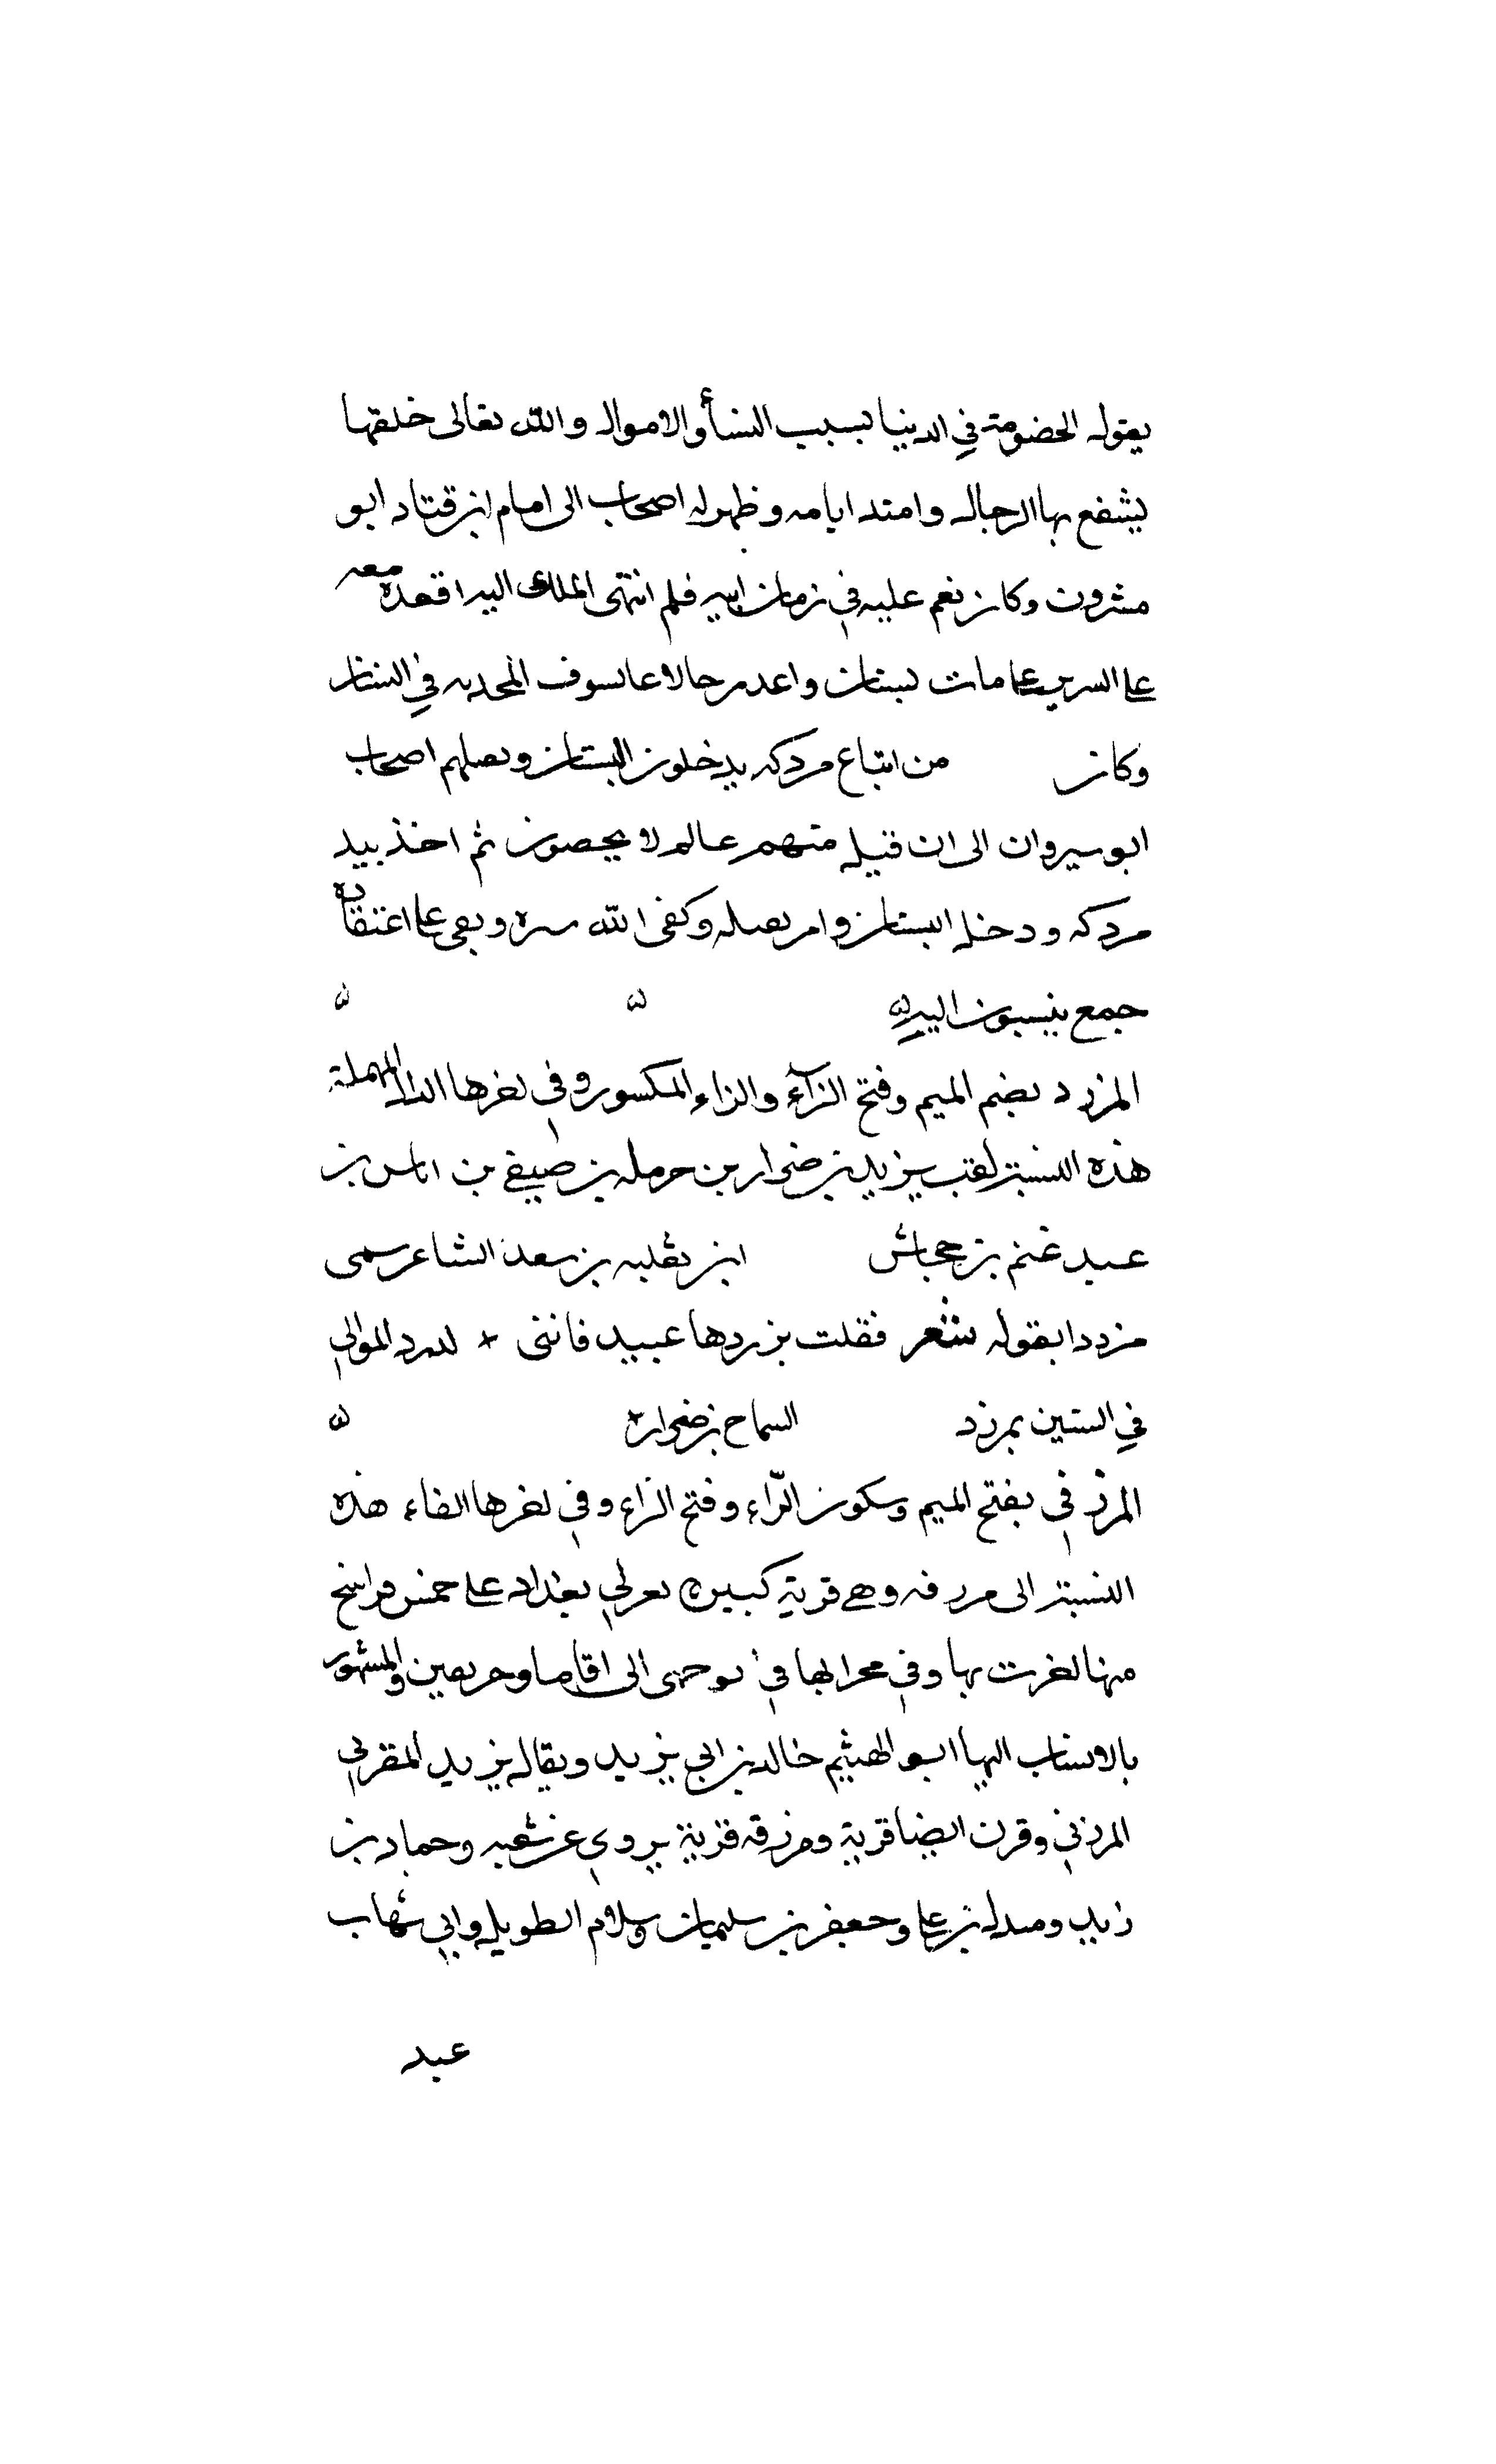 يقول الخصومة في الدنيا بسبب النسأ والاموال والله تعالى خلقها
يشفع بها الرجال وامتد ايامه وظهر له اصحاب الى امام ابن قتاد ابو
مشرون وكان نعم عليه في زمان ابيه فلم انتهى الملك اليه اقعده معه
على السرير على مات بستان واعد رجالا في البستان
وكان من اتباع مردك يدخلون البستان وىصلهم اصحاب
ابو سيروان الى ان قتيل منهم عالم لا يحصون ثم اخذ بيد
مردك ودخل البستان وامر بصله وكفى الله سره وبقى على اعتقاده
جمع ينسبون اليه ۵ ۵ ۵
المزرد بضم الميم وفتح الزآء والراء المكسور وفي اخرها الدال المهملة
هذه النسبة لقب يزيد بن ضرار بن حرمله بن صيفي بن اناس بن
عبد غنم بن حجاش ابن ثعلبه بن سعد الشاعر سمى
مزردا بقوله شعر فقلت بزردها عبيد فانني + لدرد الموالي
في الستين بمرزد السماح بن ضرار + ۵
المرزفي بفتح الميم وسكون الرّاء وفتح الزاء وفي اخرها الفاء هذه
النسبة الى مررفه وهي قرية كبيرة بغربي بغداد على خمس فراسخ
منها بها وفي الى والمشهور
بالانساب اليها ابو الهيثم خالد بن ابي يزيد ويقال يزيد المقرني
المرزني وقرن ايضا قرية ومرزقه قرية يروي عن شعبه وحماد بن
زيد ومندل بن على وجعفر بن سليمان وسلام الطويل وابي شهاب
عبد